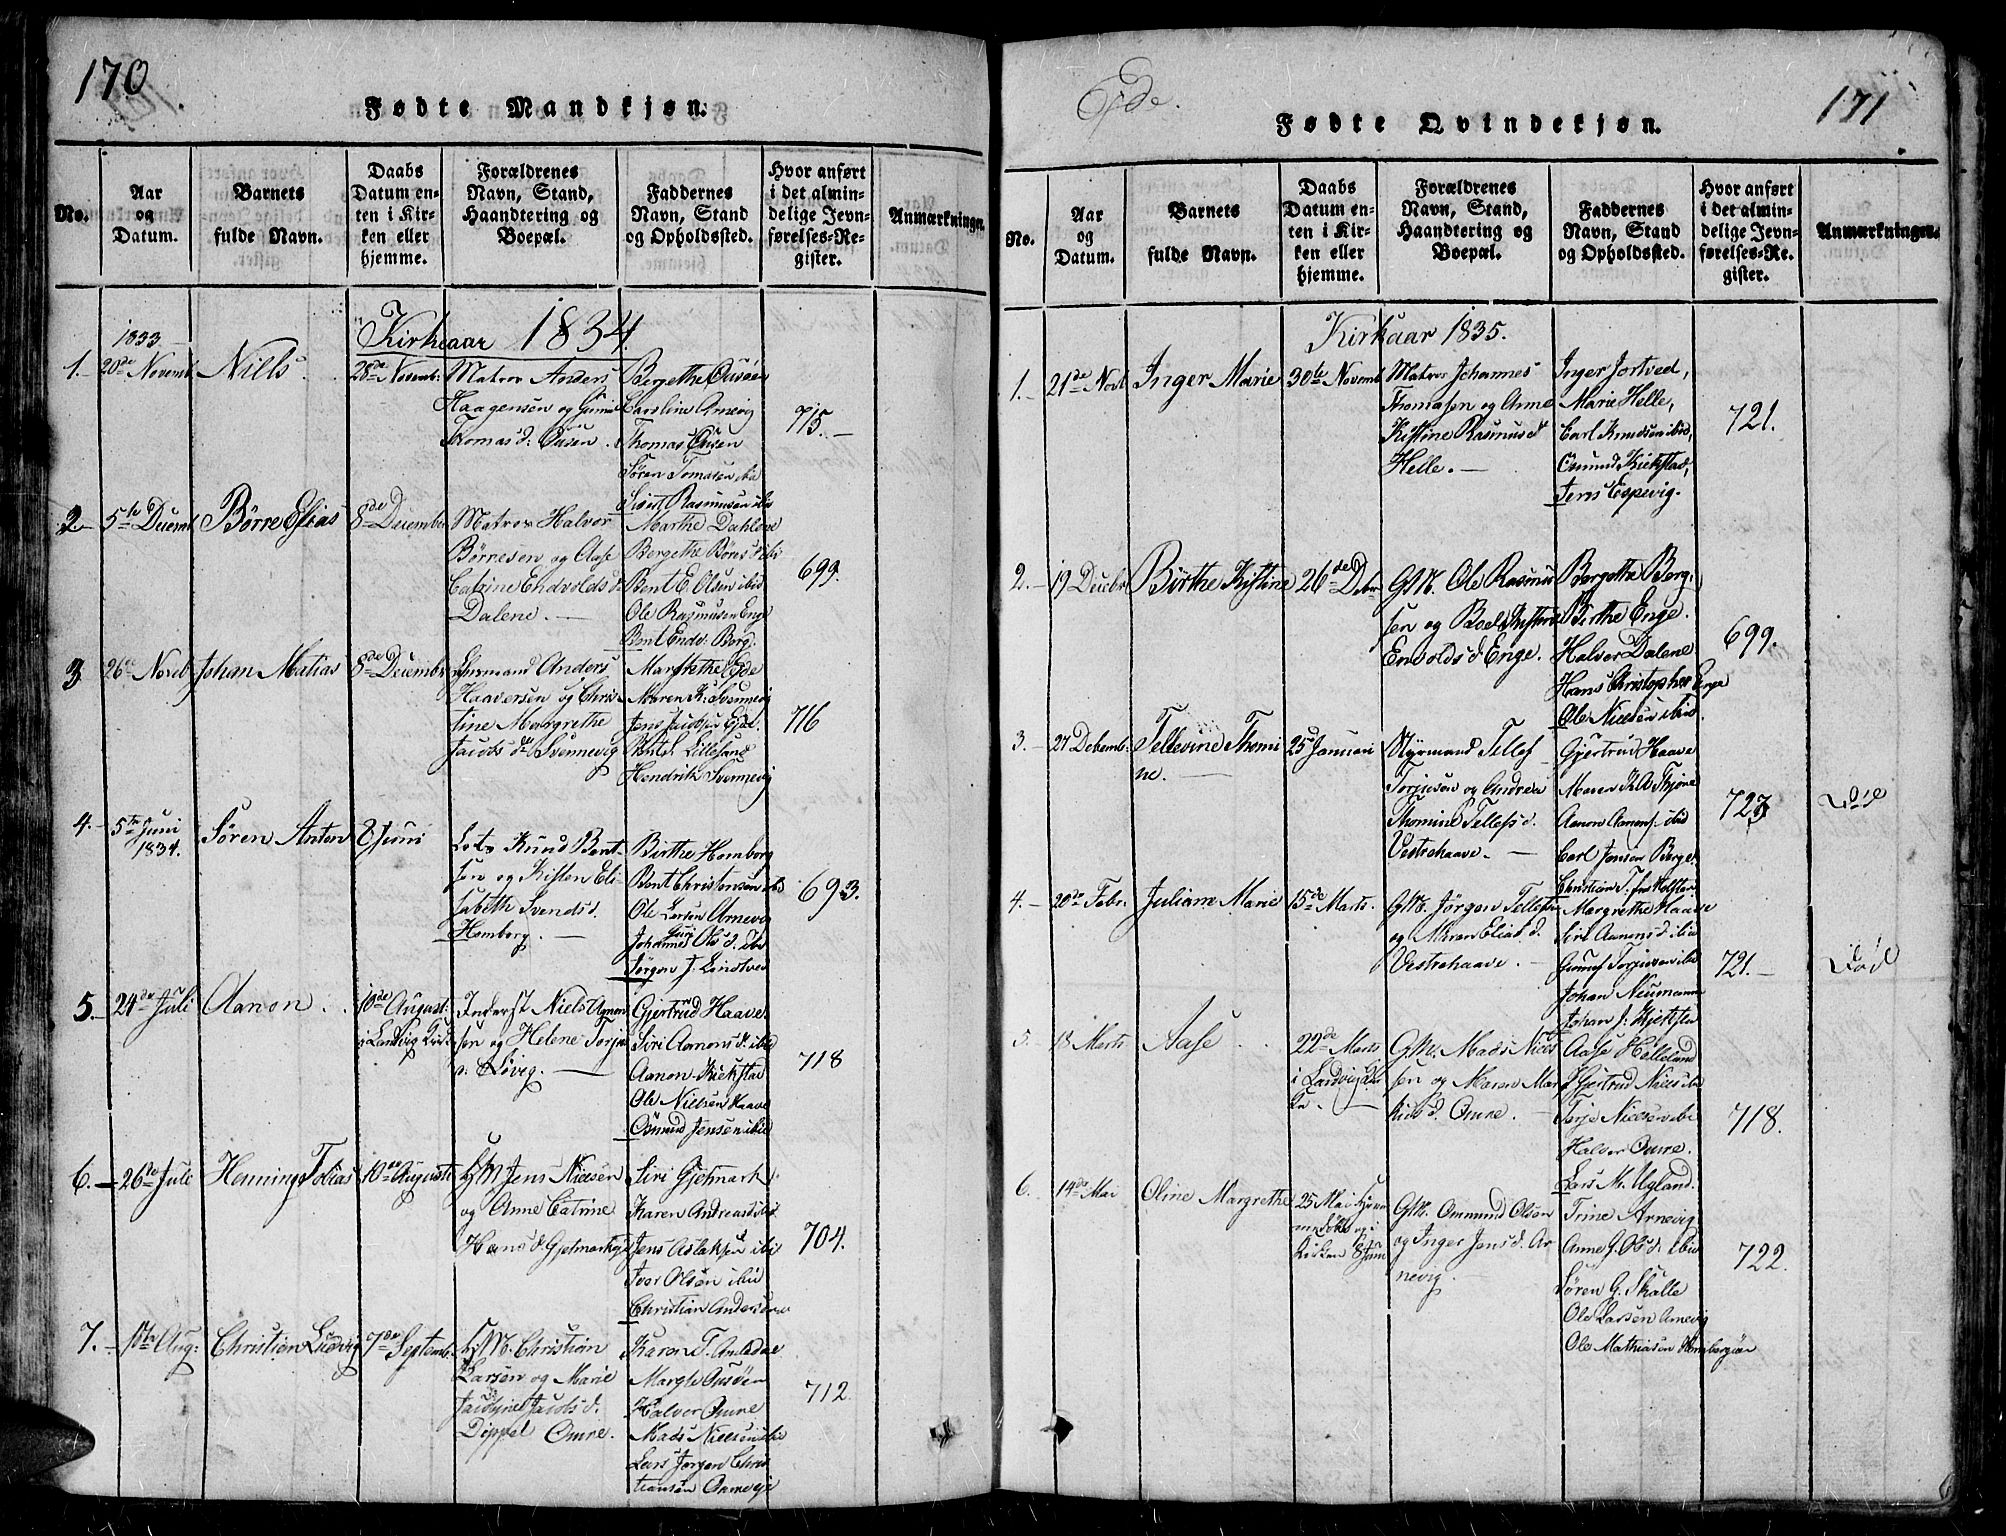 170
Fødte Mandkjøn.
No.
Aar
og
Datum.
Barnets
fulde Navn.
Daabs
Datum en-
ten i Kir-
ken eller
hjemme.
Forældrenes
Navn, Stand,
Haandtering og
Boepæl.
Faddernes
Navn, Stand
og Opholdssted.
Hvor anført
i det almin-
delige Jevn-
førelses-Re-
gister.
Anmærkninger.
Kirkeaar 1834.
1833
1.
20de Novemb.
Nills
28de Novemb.
Matros Anders
Haagensen og
Tomas d.
Bergethe
Thomas
Søren Tomasen
Sivert Rasmusen ibid
715.
2
5te Decemb
Børre Elias
8de December
Matros Halvor
Børresen og Aase
Catrine Endvolds d.
Dalene.
Marthe Dahlene
Bergethe Børes d. ibi
Bent E. Olsen ibid
Ole Rasmusen Enge
Bent Endv. Borg.
699.
3
26de Noveb
Johan Matias
8de Decembr
Anders
Haaversen og Chris-
tine Margrethe
Jacobs d. Svennevig
Margrethe Eide
Maren K. Svennevig
Jens Jacobsen Eide.
Lillesand
Hendrik Svennevig
716
4.
5te Juni
1834.
Søren Anton
8 Juni
Lots Knud Bent-
sen og Kisten Eli-
sabeth Svends d.
Homborg.
Birthe Homborg
Bent Christensen ibid
Ole Larsen Arnevig
Johannes Ols d. ibi
Jørgen J. Lindtved
693.
5.
24de Juli
Aanon
10de August
i Landvig Kirk
Inderst Niels Aanon
sen og Helene Torje
Løvig.
Gjertrud Haave
Siri Aanons d. ibid
Aanon Kiekstad
Ole Nielsen Haave
Osmund Jensen ibid
718
6.
26de Juli
Henning Tobias
10de Augusti
Jens Nielsen
og Anne Catrine
Hans d. Gjetmark
Siri Gjetmark
Karen Andreasd. ibid
Jens Aslaksen ibid
Iver Olsen ibid
Christian Andersen
704.
7.
Aug:
Christian Ludvig
7de Septemb.
Christian
Larsen og Marie
Jacobs d.
Dippel Omre.
Karen T.
Margte
Halver Omre
Mads Nielsen ibid
Lars Jørgen Chris
tiansen
712.
Eide.
171
Fødte Qvindekjøn.
No.
Aar
og
Datum.
Barnets
fulde Navn.
Daabs
Datum en-
ten i Kir-
ken eller
hjemme.
Forældrenes
Navn, Stand,
Haandtering og
Boepæl.
Faddernes
Navn, Stand
og Opholdssted.
Hvor anført
i det almin-
delige Jevn-
førelses-Re-
gister.
Anmærkninger.
Kirkaar 1835.
1.
21de Novb
Inger Marie
30te Novemb
Matros Johannes
Thomasen og Anne
Kistine Rasmus d.
Helle.
Inger Jortved,
Marie Helle,
Carl Knudsen ibid,
Osmund Kiekstad,
Jens Espevig.
721.
2.
19 Decebr
Børthe Kistine
26de Debr
GM. Ole Rasmu
sen og Boel
Envolds d. Enge.
Bergethe Berg.
Birthe Enge.
Halver Dalene
Hans Christopher Enge
Ole Nielsen ibid
699.
3.
27 Debemb.
Tellevine Thomi
ne.
25 Januari
Styrmand Tellef
Torjusen og Andrea
Thomine Tellefs d.
Vestrehaave.
Gjertrud Haave
Maren
Aanon Aanons. ibid
Carl Jensen Berge
Christian T.
723
Død
4.
20de Febr.
Juliane Marie
15de Marts.
GM. Jørgen Tellefsen
og Maren Elias d.
Vestrehaave.
Margrethe Haave
Siri Aanons d. ibid
Gunuf Torjussen ibid
Johan Neumann
Johan J.
721.
Død
5.
18 Marts
Aase
22de Marts
i Landvig Kir
ke.
GM. Mads Niels
sen og Maren Mar
kus d. Omre.
Aase Helleland
Gjertrud Niels ibid
Torje Nielsen ibi
Halver Omre.
Lars M. Ugland.
718.
6.
14de Mai
Oline Margrethe
25 Mai hjem
og i
Kirken 8 Juni
GM. Ommund Olsen
og Inger Jens d. Ar
nevig.
Trine Arnevig
Anne G. Ols d. ibid
Søren G. Skalle
Ole Larsen Arnevig
Ole Mathiasen
722.